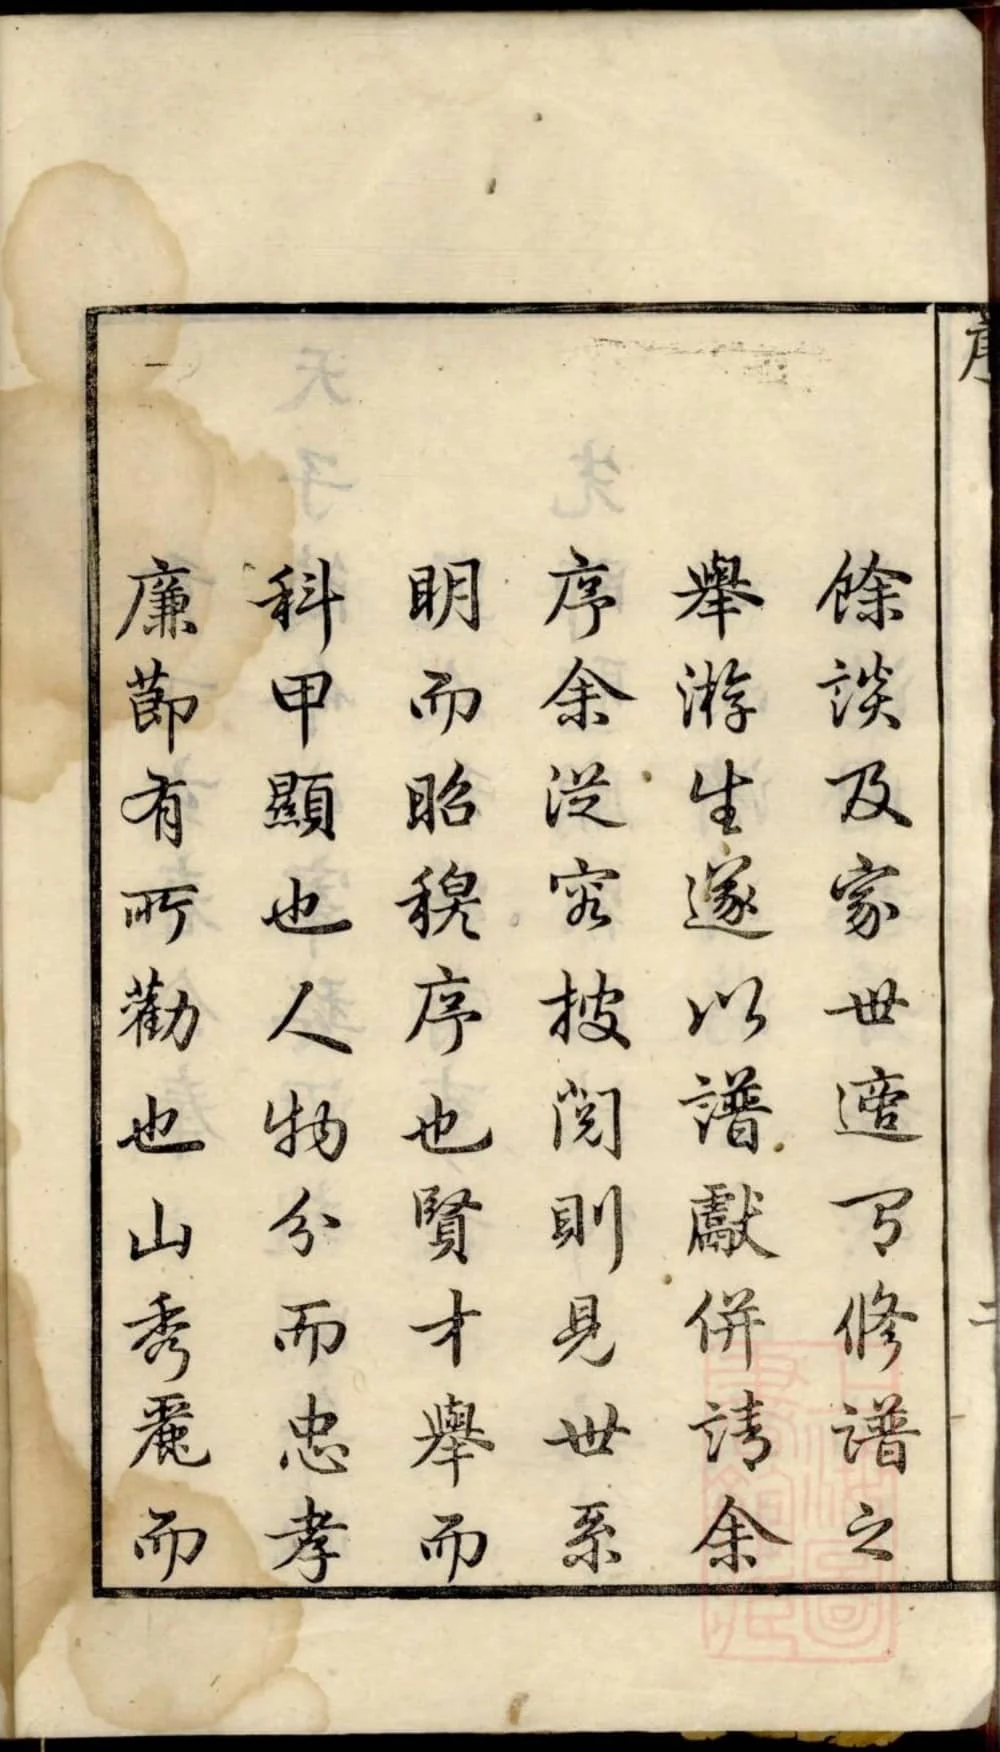 序
二
餘談及家世適有修譜之
舉游生遂以譜獻併請余
序余從容披閱則見世系
明而昭穆序也賢才舉而
科甲顯也人物分而忠孝
廉節有所勸也山秀麗而